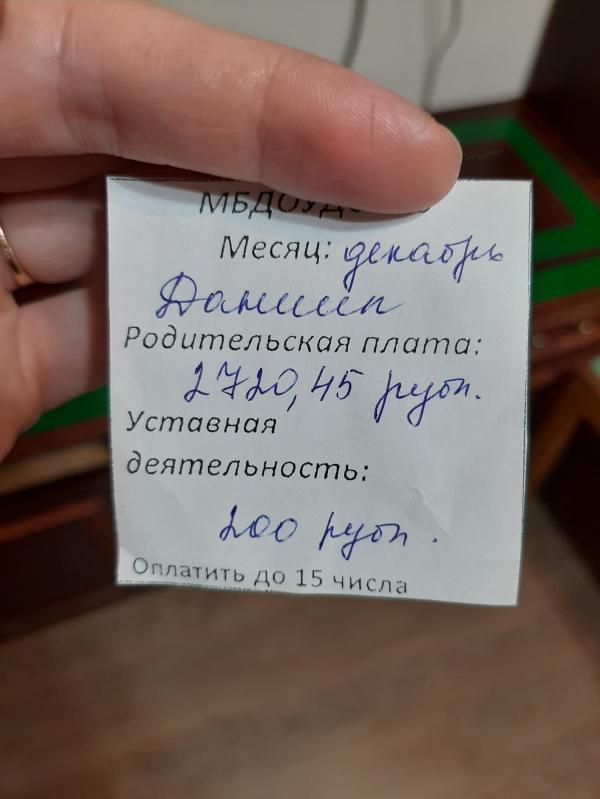 Месяц: декабрь
Даниил
Родительская плата:
2720,45 руб.
Уставная
деятельность:
200 руб.
Оплатить до 15 числа